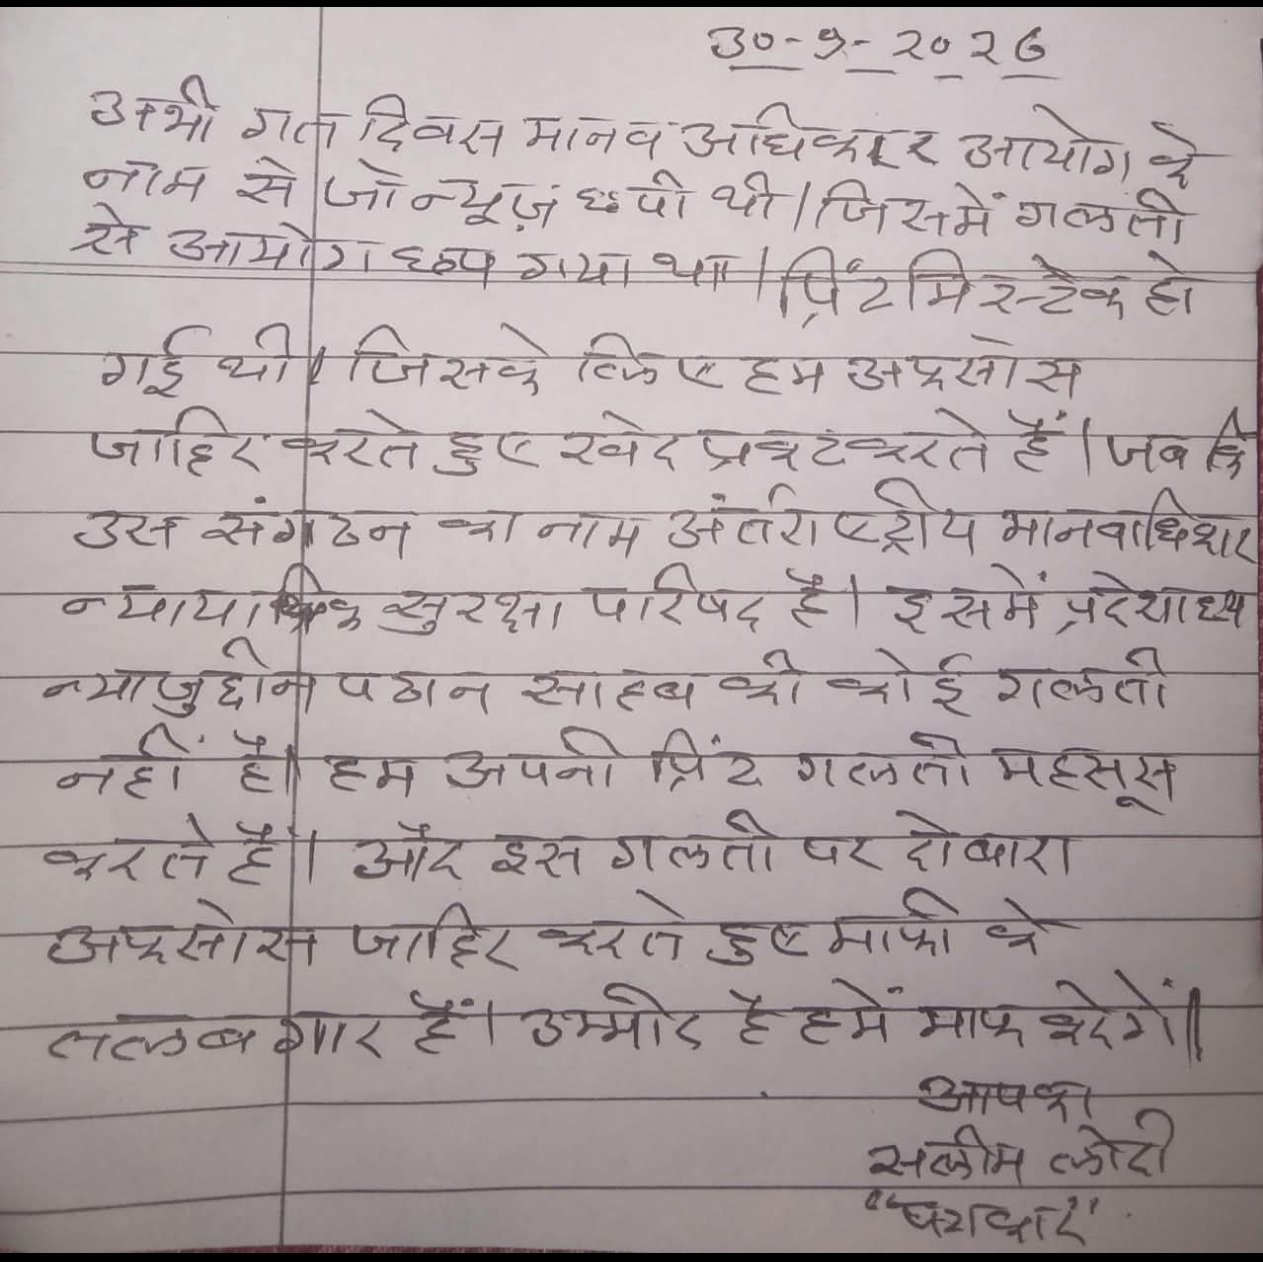 30-9-2026
अभी गत दिवस मानव अधिकार आयोग के
नाम से जो न्यूज़ छपी थी। जिसमें गलती
से आयोग छप गया था। प्रिंट मिस्टेक हो
गई थी। जिसके लिए हम अफसोस
जाहिर करते हुए खेद प्रकट करते हैं। जब कि
उस संगठन का नाम अंर्तराष्ट्रीय मानवाधिकार
न्यायायिक सुरक्षा परिषद है। इसमें प्रदेशाध्य
न्याजुद्दीन पठान साहब की कोई गलती
नहीं है। हम अपनी प्रिंट गलती महसूस
करते है। और इस गलती पर दोबारा
अफसोस जाहिर करते हुए माफी के
तलबगार हैं। उम्मीद है हमें माफ करेगें॥
आपका
सलीम लोदी
"पत्रकार"